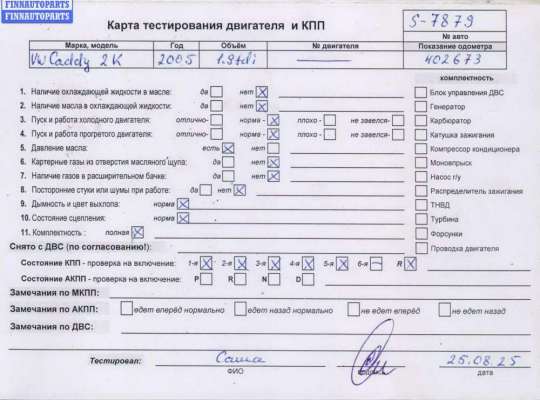 FINNAUTOPARTS
FINNAUTOPARTS
FINNAUTOPARTS
Карта тестирования двигателя и КПП
S-7879
№ авто
Марка, модель Год Объём № двигателя Показание одометра
VW Caddy 2K 2005 1.9tdi — 402673
комплектность
1. Наличие охлаждающей жидкости в масле: да нет X
Блок управления ДВС
2. Наличие масла в охлаждающей жидкости: да нет X
Генератор
3. Пуск и работа холодного двигателя: отлично- норма - X плохо - не завелся-
Карбюратор
4. Пуск и работа прогретого двигателя: отлично- норма - X плохо - не завелся-
Катушка зажигания
5. Давление масла: есть X нет
Компрессор кондиционера
6. Картерные газы из отверстия масляного щупа: да нет X
Моновпрыск
7. Наличие газов в расширительном бачке: да нет X
Насос г/у
8. Посторонние стуки или шумы при работе: да нет X
Распределитель зажигания
9. Дымность и цвет выхлопа: норма X
ТНВД
10. Состояние сцепления: норма X
Турбина
11. Комплектность : полная X
Форсунки
Снято с ДВС (по согласованию!):
Проводка двигателя
Состояние КПП - проверка на включение: 1-я X 2-я X 3-я X 4-я X 5-я X 6-я — R X
Состояние АКПП - проверка на включение: P R N D
Замечания по МКПП:
Замечания по АКПП: едет вперёд нормально едет назад нормально не едет вперёд не едет назад
Замечания по ДВС:
Тестировал: Саша 25.08.25
ФИО подпись дата